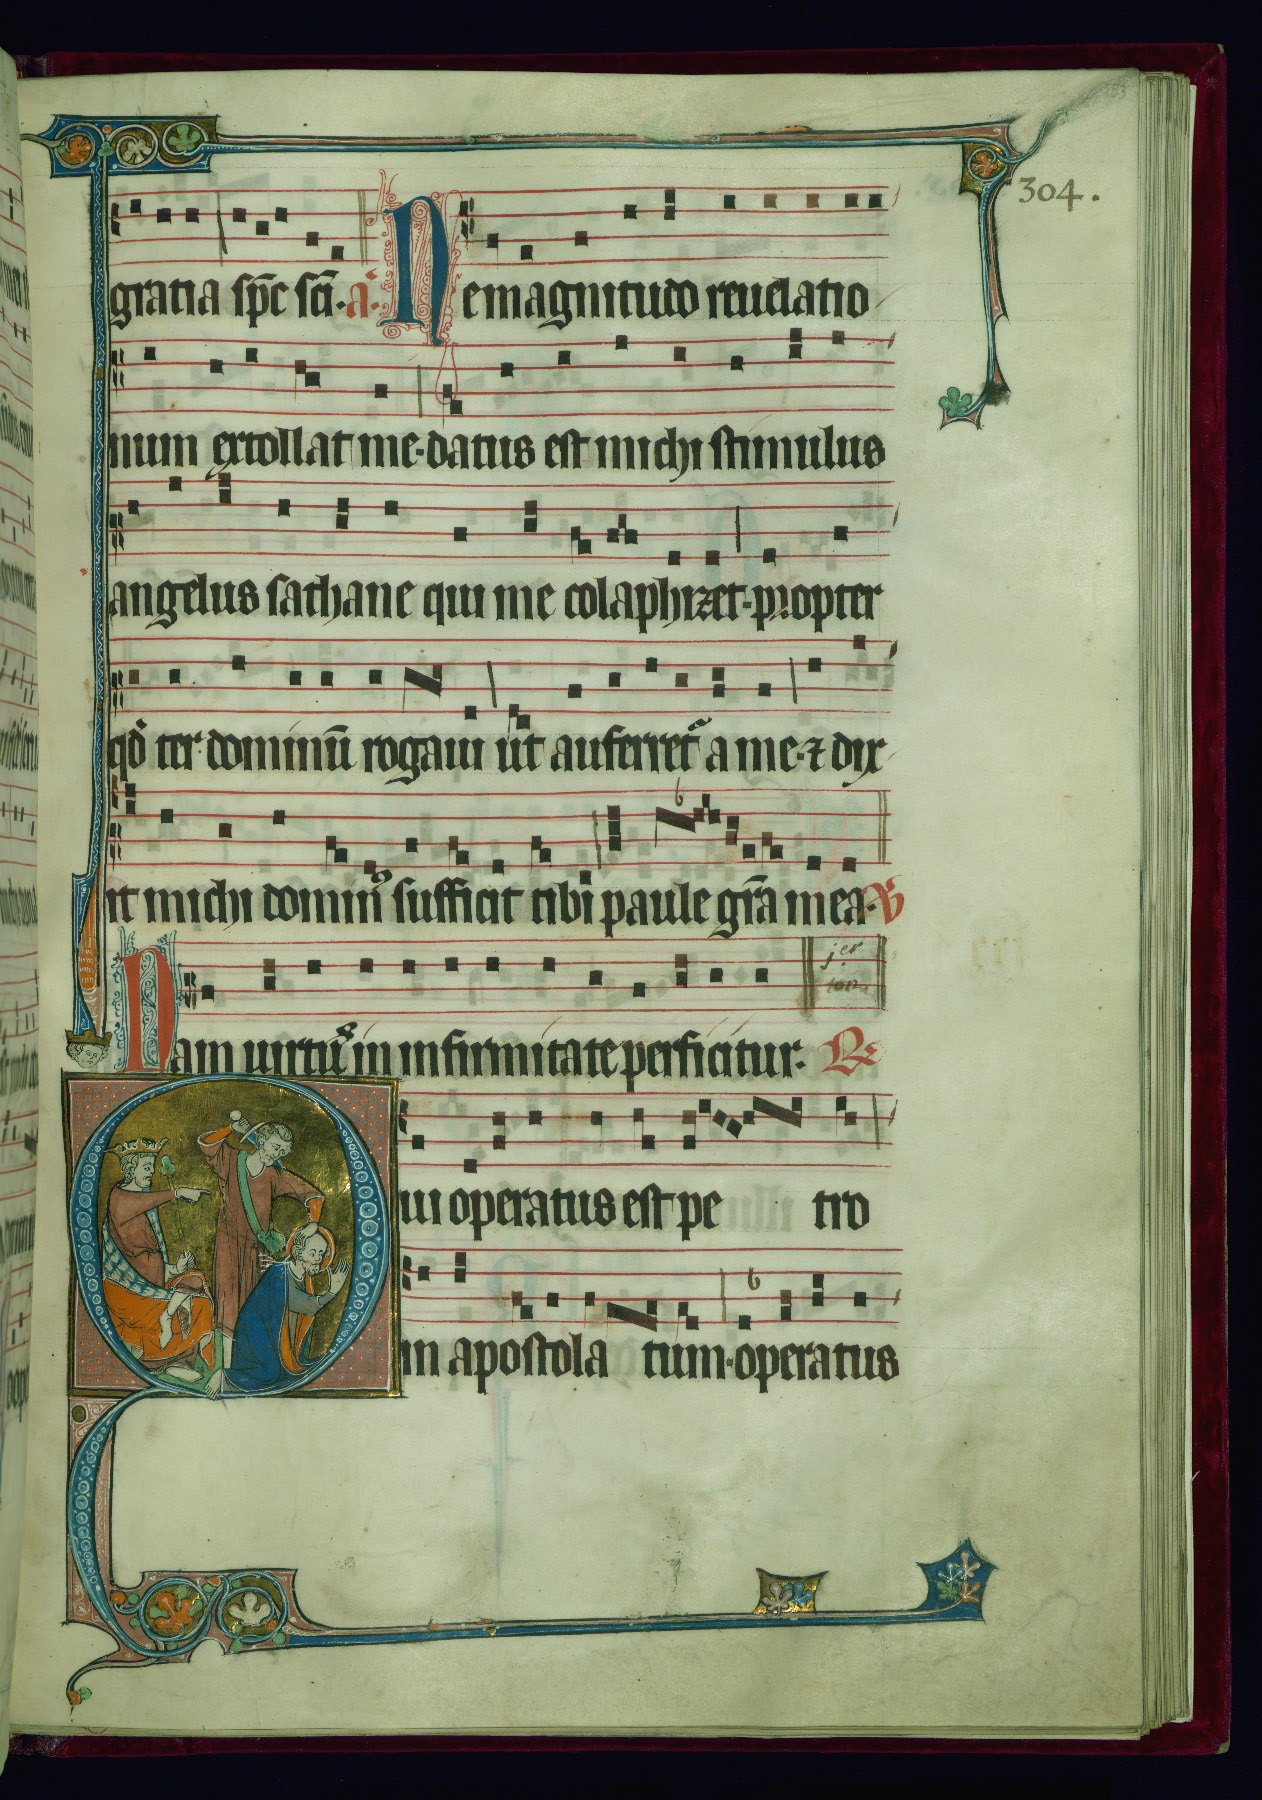 304.
gratia sp̄c sc̄i· a̓· Ne magnitudo reuelatio
num extollat me·datus est michi stimulus
angelus sathane qui me colaphizet·propter
qd̓ ter dominū rogaui ut auferretᷣ a me·⁊ dix
it michi dominꝰ sufficit tibi paule gr̄a mea· V
jer
ton
Nam uirtus in infirmitate perficitur· ℟
Qui operatus est pe tro
in apostola tum·operatus